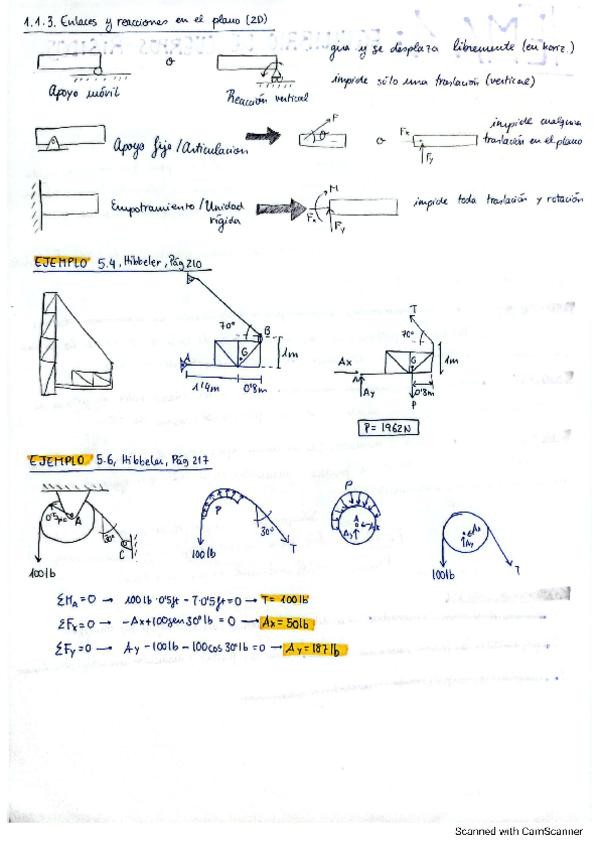 1.1.3. Enlaces y reacciones en el plano (2D)
o
gira y se desplaza libremente (en horiz.)
impide sólo una traslación (vertical)
Apoyo móvil
Reacción vertical
Apoyo fijo / Articulacion
θ
F
o
Fx
Fy
impide cualquier
traslación en el plano
Empotramiento / Unidad
rígida
M
Fx
Fy
impide toda traslación y rotación
EJEMPLO 5.4, Hibbeler, Pág 210
70°
B
A
G
1m
1'4m
0'8m
T
70°
Ax
Ay
G
1m
0'8m
P
P = 1962N
EJEMPLO 5.6, Hibbeler, Pág 217
0'5
A
30°
C
100lb
P
30°
100lb
T
P
A
Ax
Ay
Ax
Ay
100lb
T
ΣMA=0 → 100lb·0'5ft - T·0'5ft=0 → T=100lb
ΣFx=0 → -Ax+100sen30°lb = 0 → Ax=50lb
ΣFy=0 → Ay -100lb -100cos30°lb =0 → Ay=187lb
Scanned with CamScanner